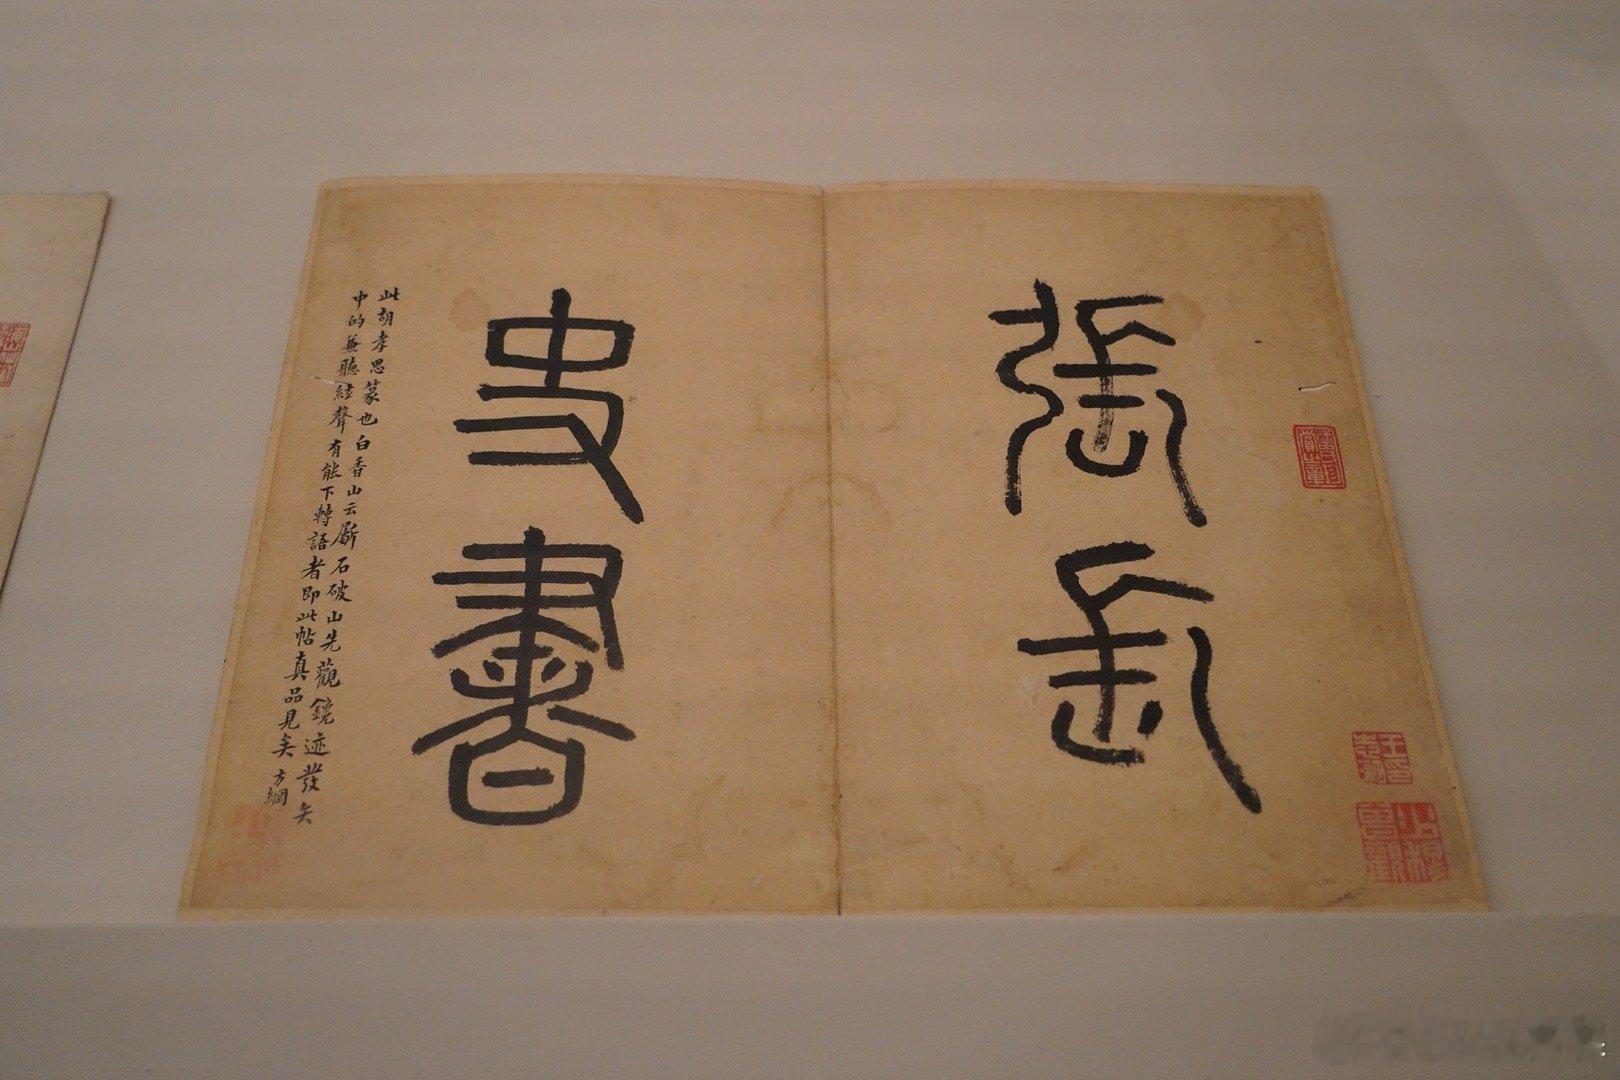 張長
史書
此胡孝思篆也白香山云斸石破山先觀鑱迹發矢
中的兼聽絃聲有能下轉語者即此帖真品見矣 方綱